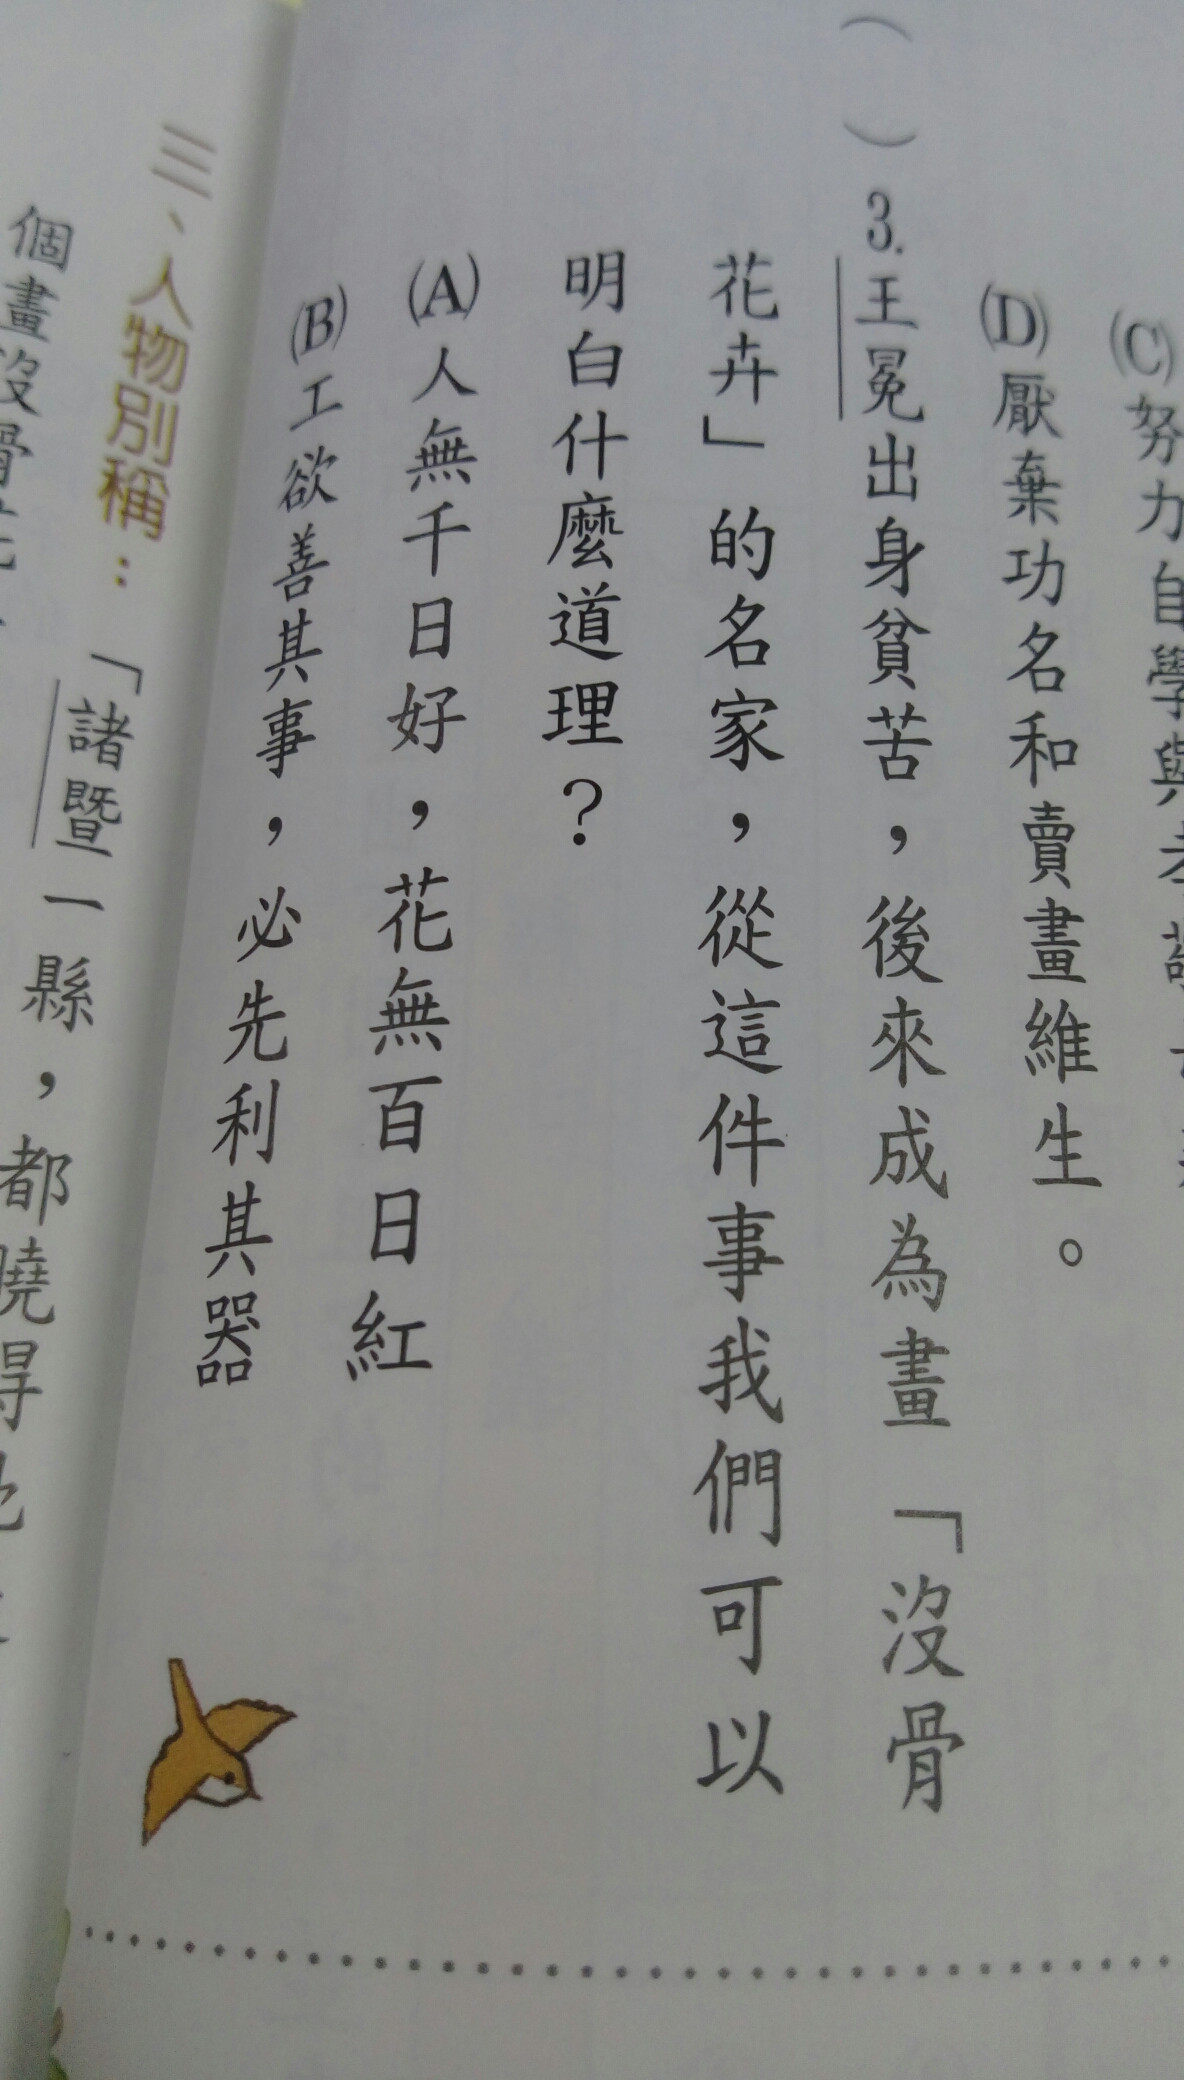 (C)努力自學與孝敬
(D)厭棄功名和賣畫維生。
(　)3.王冕出身貧苦，後來成為畫「沒骨
花卉」的名家，從這件事我們可以
明白什麼道理？
(A)人無千日好，花無百日紅
(B)工欲善其事，必先利其器
三、人物別稱：「諸暨一縣，都曉得
個畫沒骨花